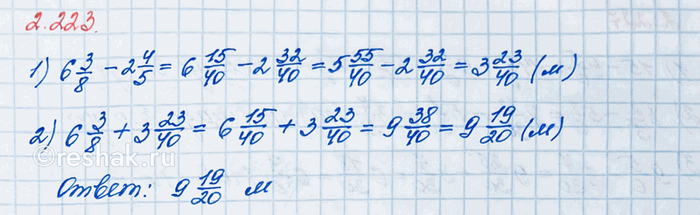 2.223.
1) 6 3/8 - 2 4/5 = 6 15/40 - 2 32/40 = 5 55/40 - 2 32/40 = 3 23/40 (м)
2) 6 3/8 + 3 23/40 = 6 15/40 + 3 23/40 = 9 38/40 = 9 19/20 (м)
©reshak.ru
Ответ: 9 19/20 м